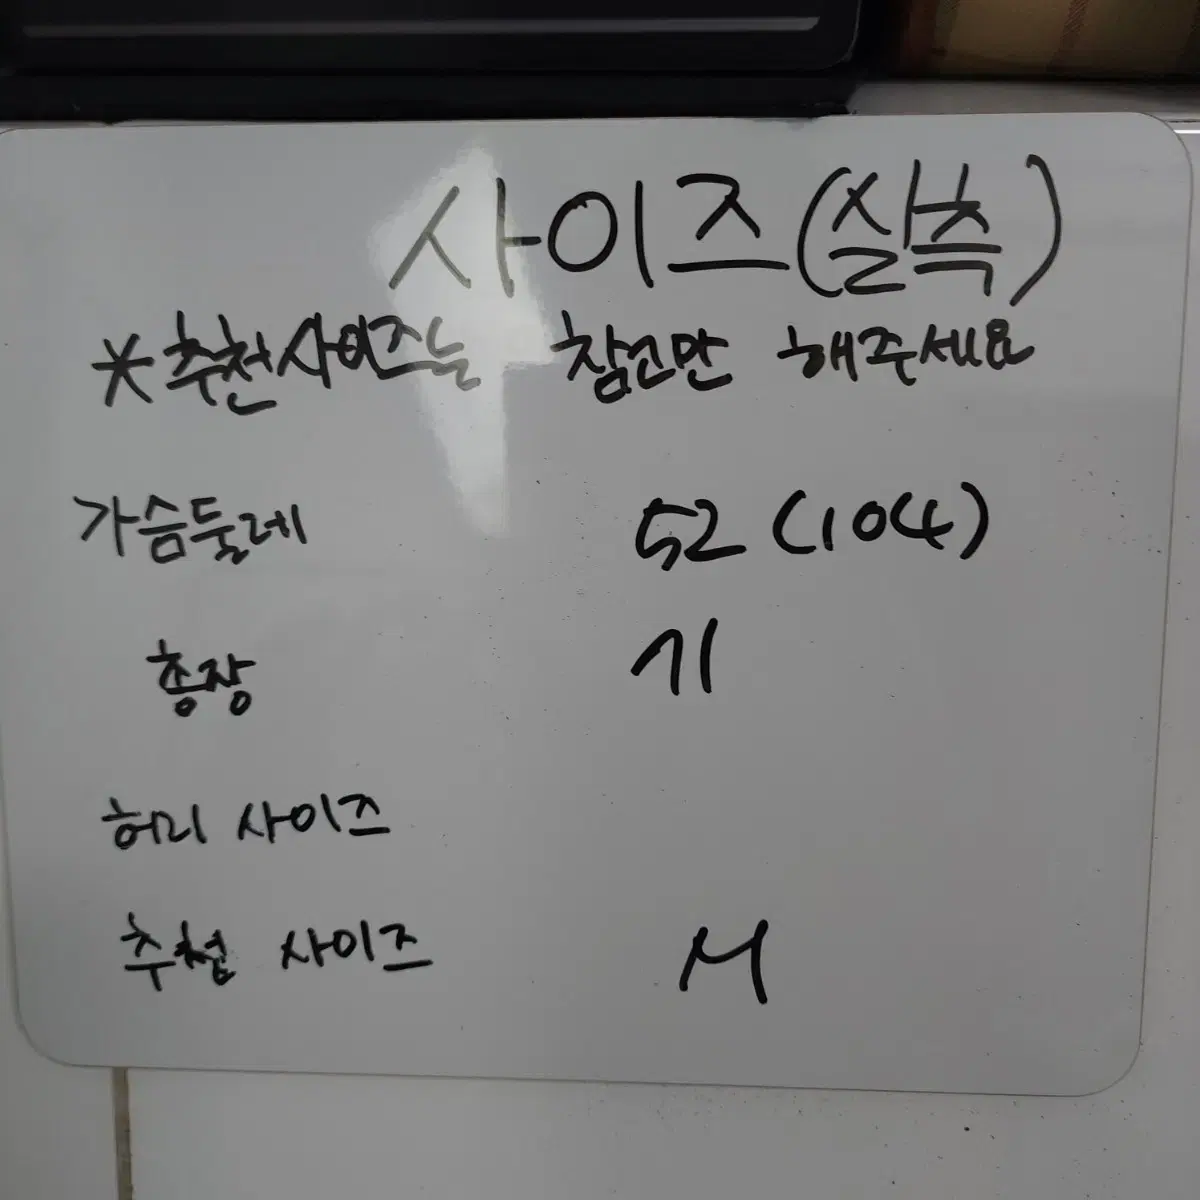 사이즈(실측)
*추천사이즈는 참고만 해주세요
가슴둘레 52 (104)
총장 71
허리 사이즈
추천 사이즈 M